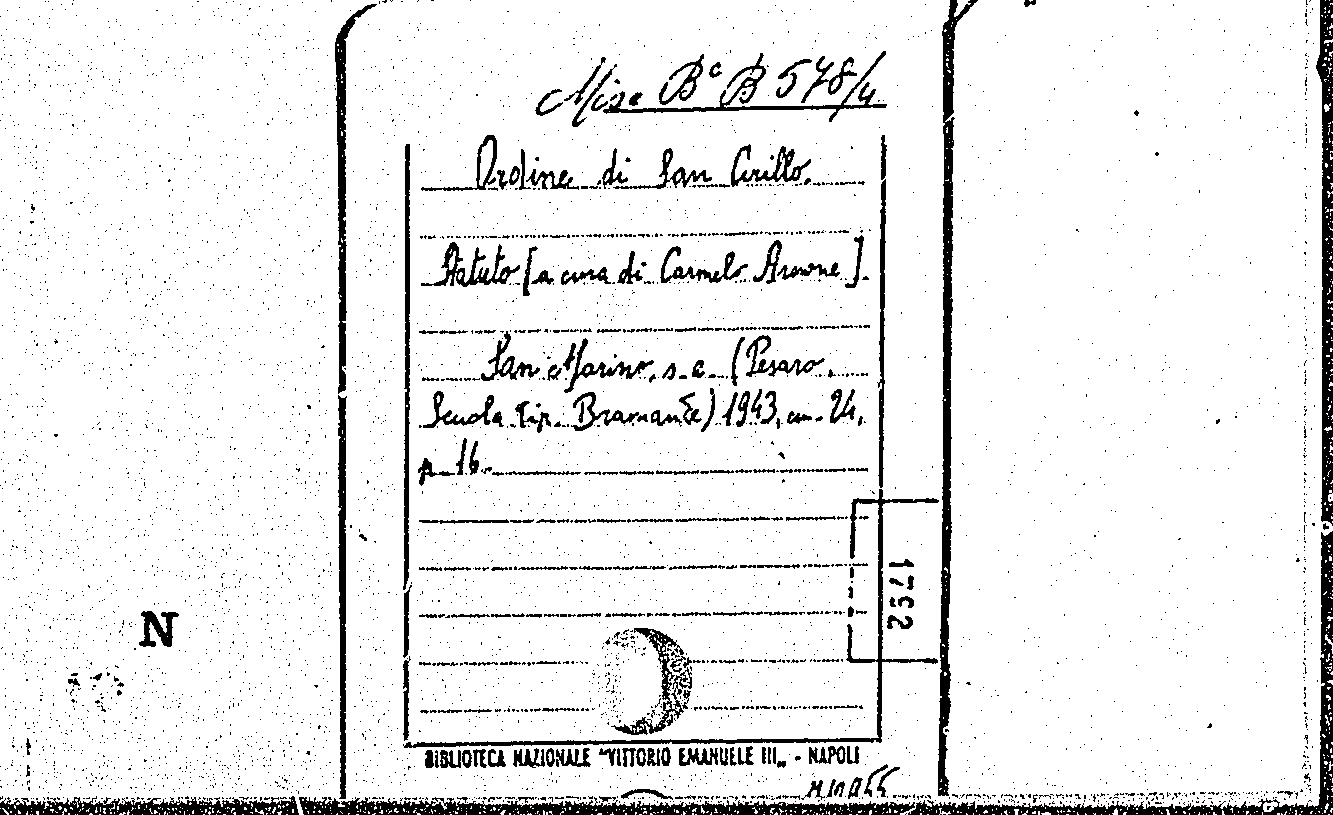 Misc Bᶜ B 578/4
Ordine di San Cirillo.
Statuto [a cura di Carmelo Arnone].
San Marino, s. e. (Pesaro,
Scuola Tip. Bramante) 1943, cm. 24,
p. 16.
1792
N
BIBLIOTECA NAZIONALE "VITTORIO EMANUELE III„ - NAPOLI